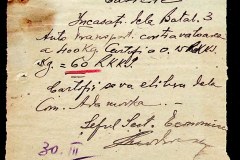 Incasați dela Batal. 3
Auto transport. contravaloarea
a 400 Kg. Cartofi a 0,15 RKKS
Kg = 60 RKKS.
Cartofii se va elibera dela
Com.
Șeful Sect. Economice
30. III